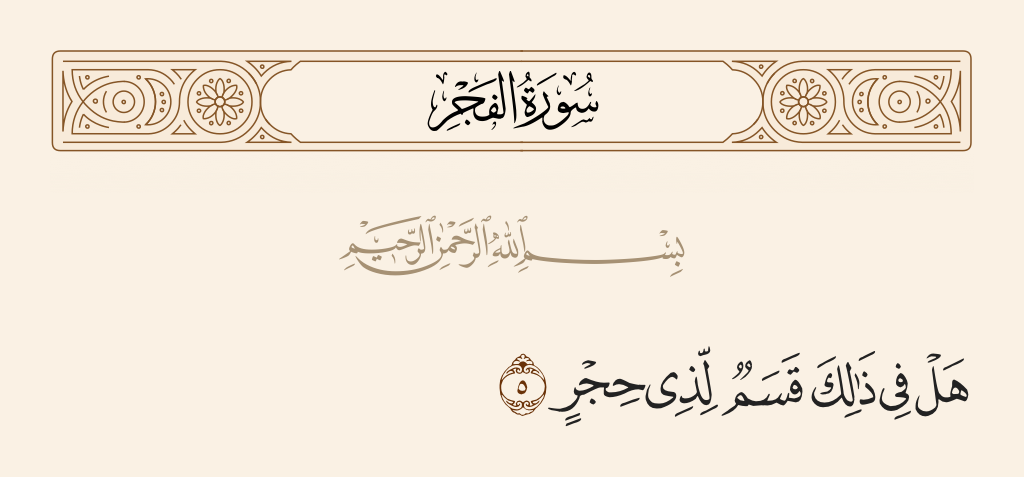 سُورَةُ الفَجْرِ
بِسْمِ ٱللَّهِ ٱلرَّحْمَٰنِ ٱلرَّحِيمِ
هَلْ فِى ذَٰلِكَ قَسَمٌ لِّذِى حِجْرٍ ٥